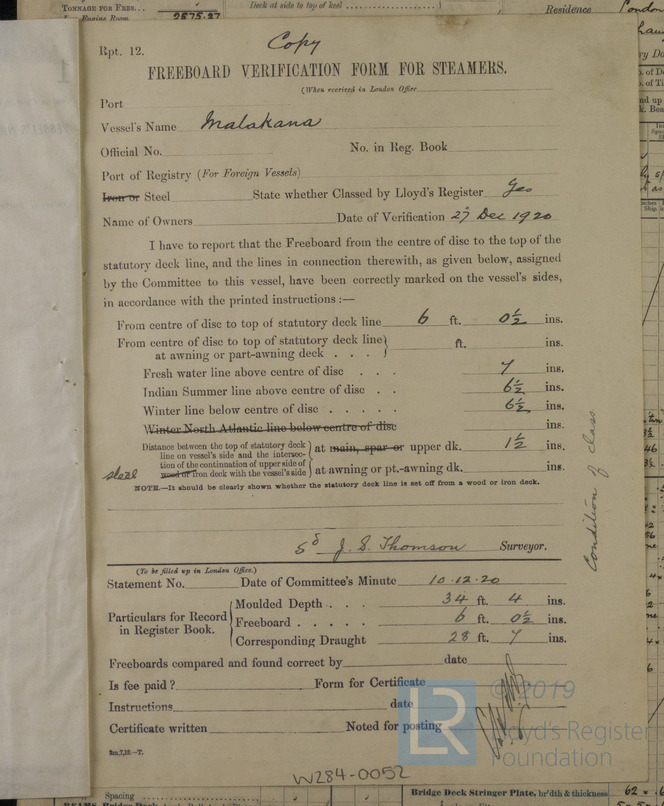 TONNAGE FOR FEES...
2575.27
Engine Room
Deck at side to top of keel
Residence London
Copy
Rpt. 12.
FREEBOARD VERIFICATION FORM FOR STEAMERS.
(When received in London Office
Port
Vessel's Name Malakana
Official No. No. in Reg. Book
Port of Registry (For Foreign Vessels)
Iron or Steel State whether Classed by Lloyd's Register Yes
Name of Owners Date of Verification 27 Dec 1920
I have to report that the Freeboard from the centre of disc to the top of the
statutory deck line, and the lines in connection therewith, as given below, assigned
by the Committee to this vessel, have been correctly marked on the vessel's sides,
in accordance with the printed instructions :—
From centre of disc to top of statutory deck line 6 ft. 0½ ins.
From centre of disc to top of statutory deck line ft. ins.
at awning or part-awning deck . . .
Fresh water line above centre of disc . . . 7 ins.
Indian Summer line above centre of disc . . 6½ ins.
Winter line below centre of disc . . . . . 6½ ins.
Winter North Atlantic line below centre of disc ins.
Distance between the top of statutory deck
line on vessel's side and the intersec-
tion of the continuation of upper side of
steel wood or iron deck with the vessel's side
at main, spar or upper dk. 1½ ins.
at awning or pt.-awning dk. ins.
NOTE.—It should be clearly shown whether the statutory deck line is set off from a wood or iron deck.
Condition of class
Sd J. S. Thomson Surveyor.
(To be filled up in London Office.)
Statement No. Date of Committee's Minute 10.12.20
Particulars for Record
in Register Book.
Moulded Depth . . . 34 ft. 4 ins.
Freeboard . . . . . 6 ft. 0½ ins.
Corresponding Draught 28 ft. 7 ins.
Freeboards compared and found correct by date
Is fee paid? Form for Certificate
Instructions date
Certificate written Noted for posting
2m,7,19.—T.
LR
© 2019
Lloyd's Register
Foundation
W284-0052
Spacing
Bridge Deck Stringer Plate, br'dth & thickness 62